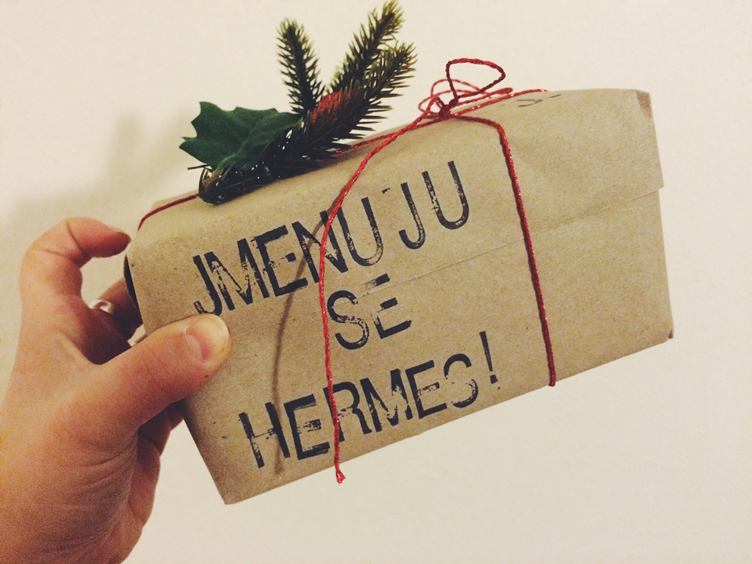 JMENUJU
SE
HERMES!